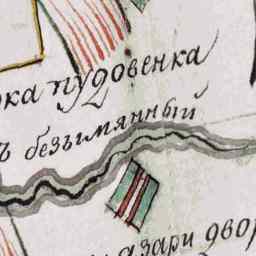 ка пудовенка
ъ безымянный
азари двор